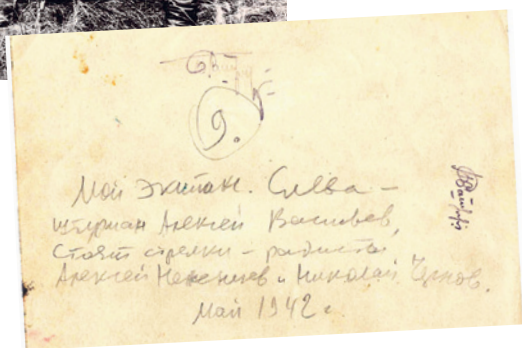 9.
Мой экипаж. Слева –
штурман Алексей Васильев,
Стоят стрелки – радисты
Алексей и Николай
Май 1942 г